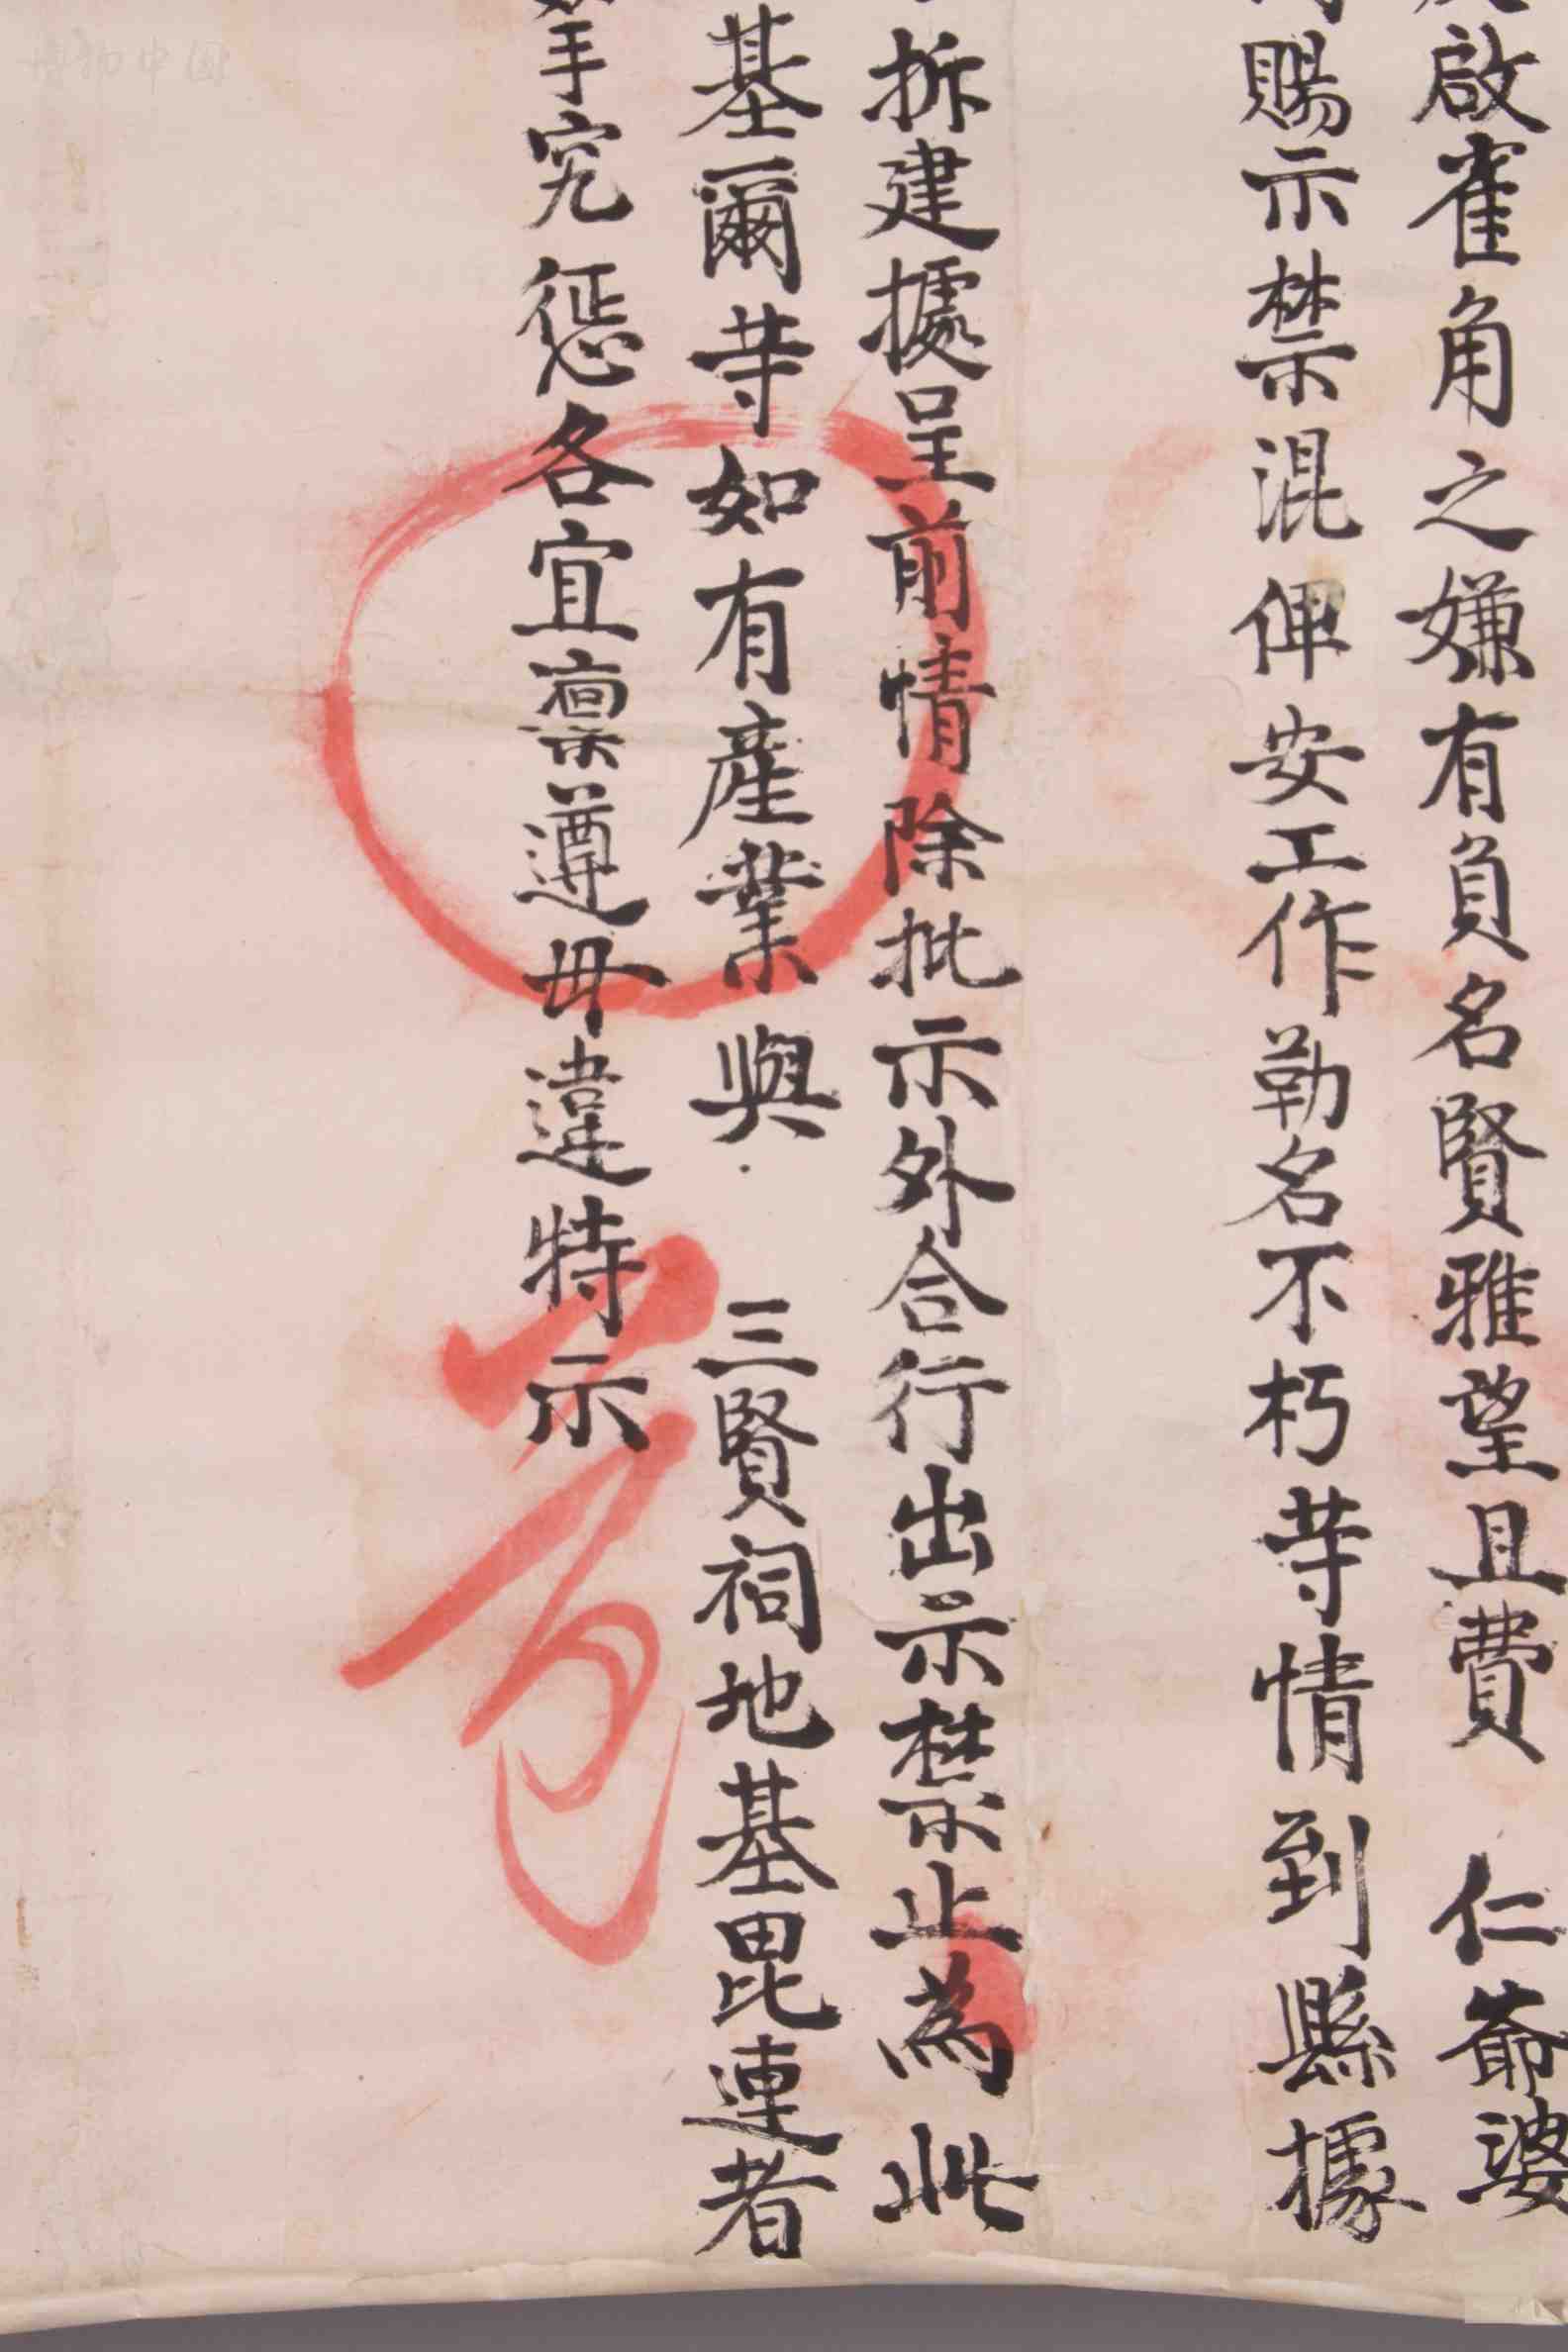 啟雀角之嫌有負名賢雅望且費 仁爺婆
賜示禁混俾安工作勒名不朽䓁情到縣據
拆建據呈前情除批示外合行出示禁止為此
基爾䓁如有產業與 三賢祠地基毘連者
究懲各宜凜遵毋違特示